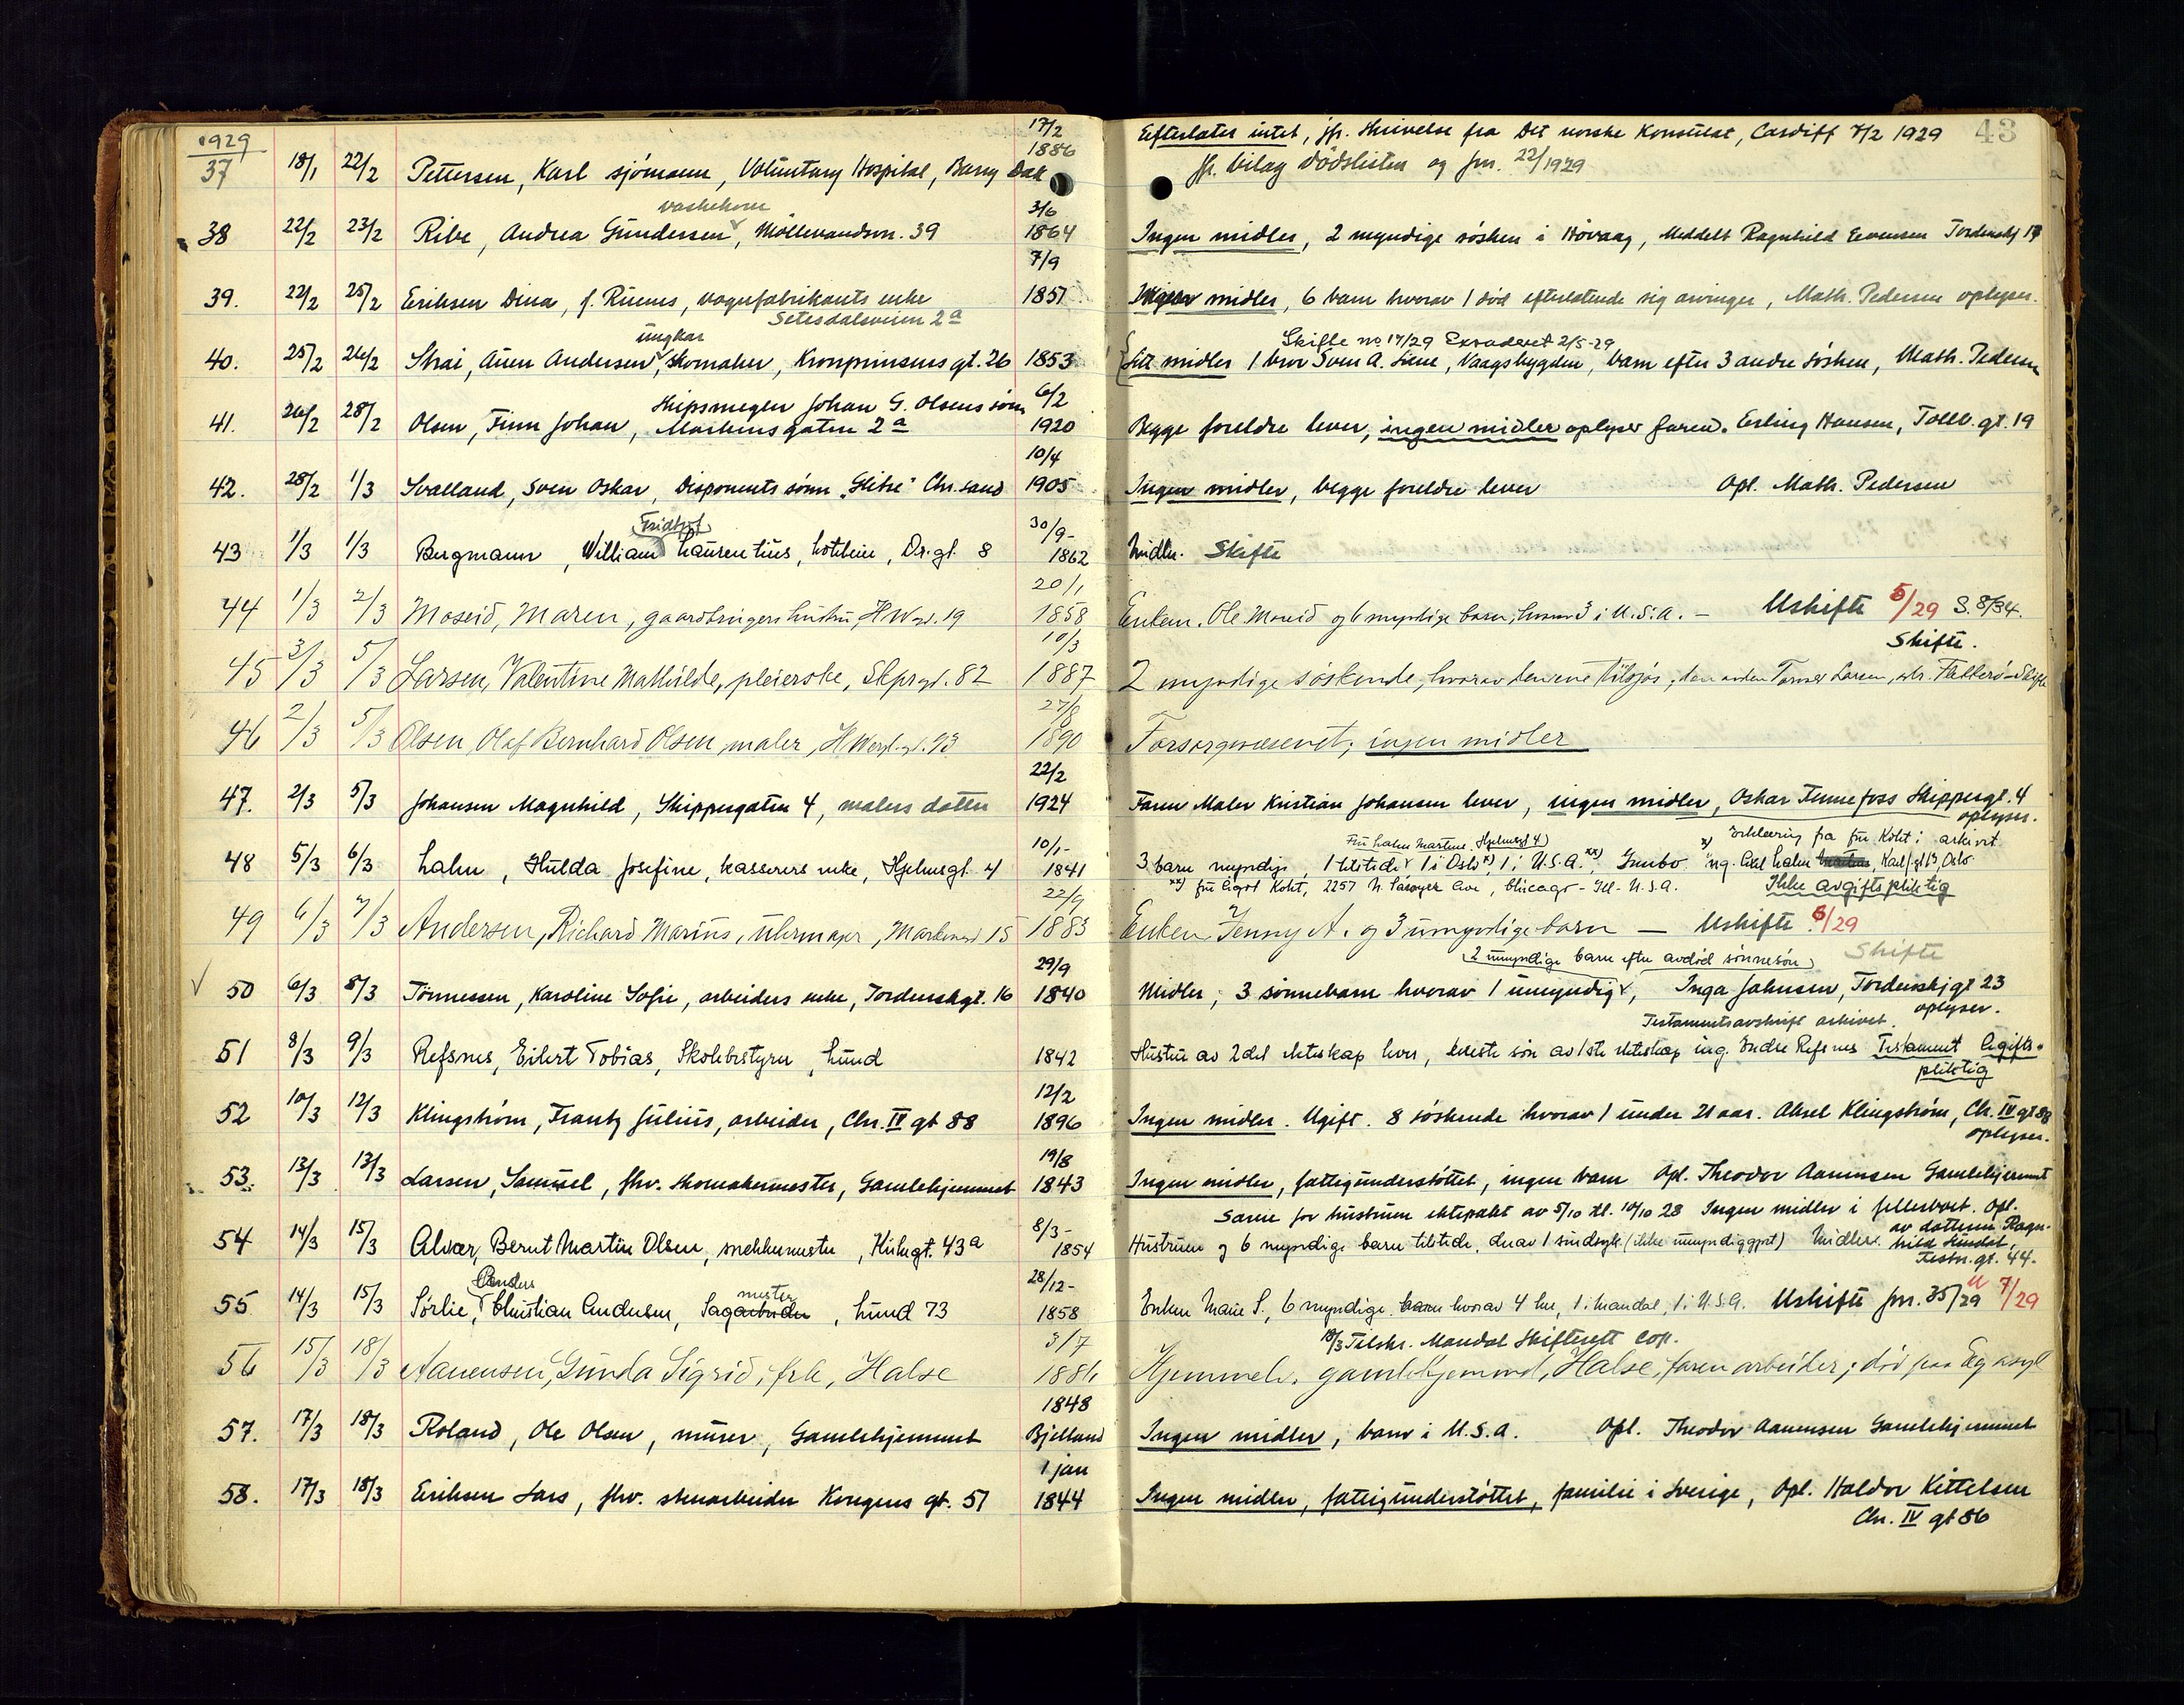 1929 17/2 Efterlater intet, jfr. Skrivelse fra Det norske Konsulat, Cardiff 7/2 1929 43
37 18/1 22/2 Pettersen, Karl sjömann, Voluntary Hospital, Barry Dok 1886 jfr. bilag dödslisten og jnr. 22/1929
vaskekone 3/6
38 22/2 23/2 Ribe, Andrea Gundersen, Möllevandsvn. 39 1864 Ingen midler, 2 myndige sösken i Hövaag, Meddelt Ragnhild Evensen Tordenskj 17
7/9
39. 22/2 25/2 Eriksen Dina, f. Ruenes, vognfabrikants enke 1851 Ingen midler, 6 barn hvorav 1 död efterlatende sig arvinger, Math. Pedersen oplyser.
Setesdalsveien 2a
ungkar Skifte no 17/29 Exraderet 2/5-29
40. 25/2 26/2 Strai, Anen Andersen, skomaker, Kronprinsens gt. 26 1853 Litt midler 1 bror Sven A. Liene, Vaagsbygden, barn efter 3 andre sösken, Math. Pedersen
Skipsmegler Johan G. Olsens sönn 6/2
41. 26/2 28/2 Olsen, Finn Johan, Markensgaten 2a 1920 Begge foreldre lever, ingen midler oplyser faren. Erling Hansen, Tollb. gt. 19
10/4
42. 28/2 1/3 Svalland, Sven Oskar, Disponents sönn "Glitre" Chr.sand 1905 Ingen midler, begge foreldre lever Opl. Math. Pedersen
Fridtjof 30/9-
43 1/3 1/3 Bergmann, William Laurentius, hoteleier, Dr. gt. 8 1862 Midler. Skifte
20/1
44 1/3 2/3 Moseid, Maren, gaardbrugers hustru, H Wgt. 19 1858 Enken. Ole Moseid og 6 myndige barn, hvorav 3 i U.S.A. — Uskifte 5/29 S. 8/34.
10/3 Skifte.
45 3/3 5/3 Larsen, Valentine Mathilde, pleierske, Skprgt. 82 1887 2 myndige söskende, hvorav den ene tilsjös; den anden Larsen, Flekkerö Skifte
27/8
46 2/3 5/3 Olsen, Olaf Bernhard Olsen, maler, H Wergl. gt. 93 1890 Forsorgsvæsenet; ingen midler
22/2
47. 2/3 5/3 Johansen Magnhild, Skippergaten 4, malers datter 1924 Faren Maler Kristian Johansen lever, ingen midler, Oskar Tennefoss Skippergt. 4
oplyser.
10/1- Fru Lahn Martens, Hjelmsgt 4) x) Erklæring fra fru Koht i arkivet
48 5/3 6/3 Lahn, Hulda Josefine, kasserers enke, Hjelmsgt. 4 1841 3 barn myndige, 1 tilstede 1 i Oslo x), 1 i U.S.A. xx) Innbo ing. Axel Lahn Oslo
xx) fru Sigrt Koht, 2257 N. Sawyer Ave, Chicago - Ill. U.S.A. Ikke avgiftspliktig
22/9
49 6/3 7/3 Andersen, Richard Marius, uhrmaker, Markensgt 15 1883 Enken Jenny A. og 3 umyndige barn — Uskifte 6/29
29/9 (2 umyndige barn efter avdöd sönnesön) Skifte
50 6/3 8/3 Tönnessen, Karoline Sofie, arbeiders enke, Tordenskgt. 16 1840 Midler, 3 sönnebarn hvorav 1 umyndig, Inga Johnsen, Tordenskjgt 23
Testamentsavskrift arkivet. oplyser.
51 8/3 9/3 Refsnes, Eilert Tobias, Skolebestyrer, Lund 1842 Hustru av 2det ekteskap lever, eneste sön av 1ste ekteskap ing. Endre Refsnes Testament Avgifts-
pliktig
12/2
52 10/3 12/3 Klingström, Frantz Julius, arbeider, Chr. IV gt 88 1896 Ingen midler. Ugift. 8 söskende hvorav 1 under 21 aar. Aksel Klingström, Chr. IV gt 88
oplyser.
19/8
53. 13/3 13/3 Larsen, Samuel, fhv. skomakermester, Gamlehjemmet 1843 Ingen midler, fattigunderstöttet, ingen barn Opl. Theodor Aanensen Gamlehjemmet
8/3- Særeie for hustruen ektepakt av 5/10 tl. 10/10 28 Ingen midler i fellesboet. Opl.
54 14/3 15/3 Alvær, Bernt Martin Olsen, snekkermester, Kirkegt. 43a 1854 Hustruen og 6 myndige barn tilstede, derav 1 sindssyk (ikke umyndiggjort) Midler. av datteren Ragn-
hild Sundal,
Festn. gt. 44.
Anders mester 28/12-
55 14/3 15/3 Sörlie, Christian Andersen, Sagarbeider, Lund 73 1858 Enken Marie S., 6 myndige barn hvorav 4 her, 1 i Mandal, 1 i U.S.A. Uskifte jnr. 35/29 U 7/29
3/7 18/3 Tilskr. Mandal Skifterett Cop.
56 15/3 18/3 Aanensen, Gunda Sigrid, frk, Halse 1886 Hjemmeh. gamlehjemmet, Halse, faren arbeider; död paa Eg asyl
1848
57. 17/3 18/3 Roland, Ole Olsen, murer, Gamlehjemmet Bjelland Ingen midler, barn i U.S.A. Opl. Theodor Aanensen Gamlehjemmet
1 jan
58. 17/3 18/3 Eriksen Lars, fhv. stenarbeider Kongens gt. 51 1844 Ingen midler, fattigunderstöttet, familie i Sverige, Opl. Haldor Kittelsen
Chr. IV gt 86